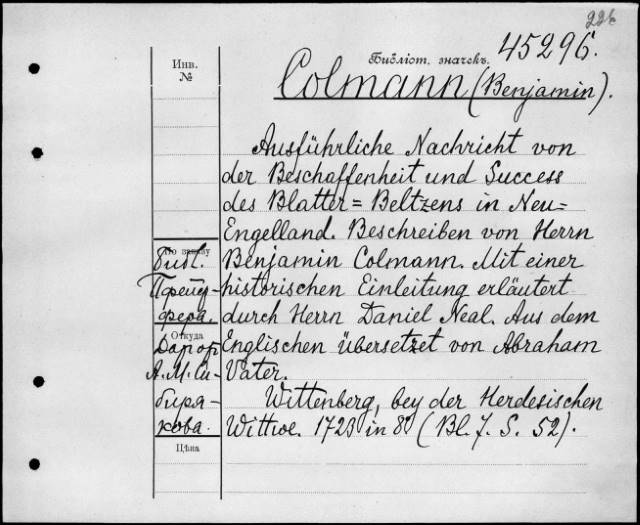 226
Библіот. значекъ.
45296.
Инв.
№
Colmann (Benjamin).
Ausführliche Nachricht von
der Beschaffenheit und Success
des Blatter=Beltzens in Neu=
Engelland. Beschreiben von Herrn
Benjamin Colmann. Mit einer
historischen Einleitung erläutert
durch Herrn Daniel Neal. Aus dem
Englischen übersetzet von Abraham
Vater.
Wittenberg, bey der Herdesischen
Wittwe. 1723 in 8º (Bl. J. S. 52).
По заказу
Библ.
Пфейф-
фера.
Откуда
Дар от
А. М. Си-
биря-
кова.
Цѣна